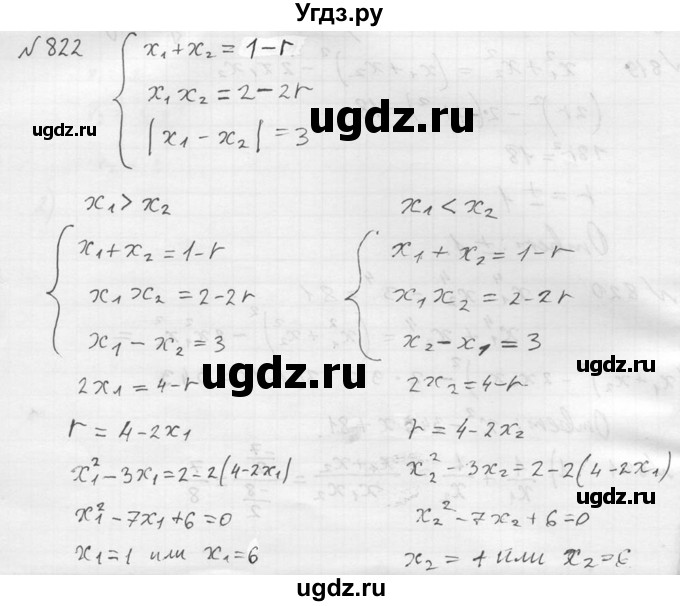 Угдз.ру
№822
x₁+x₂=1-r
x₁x₂=2-2r
|x₁-x₂|=3
ugdz.ru
ugdz.ru
ugdz.ru
ugdz.ru
x₁>x₂
x₁+x₂=1-r
x₁x₂=2-2r
x₁-x₂=3
2x₁=4-r
r=4-2x₁
x₁²-3x₁=2-2(4-2x₁)
x₁²-7x₁+6=0
x₁=1 или x₁=6
x₁<x₂
x₁+x₂=1-r
x₁x₂=2-2r
x₂-x₁=3
2x₂=4-r
r=4-2x₂
x₂²-3x₂=2-2(4-2x₁)
x₂²-7x₂+6=0
x₂=1 или x₂=6
ugdz.ru
ugdz.ru
ugdz.ru
ugdz.ru